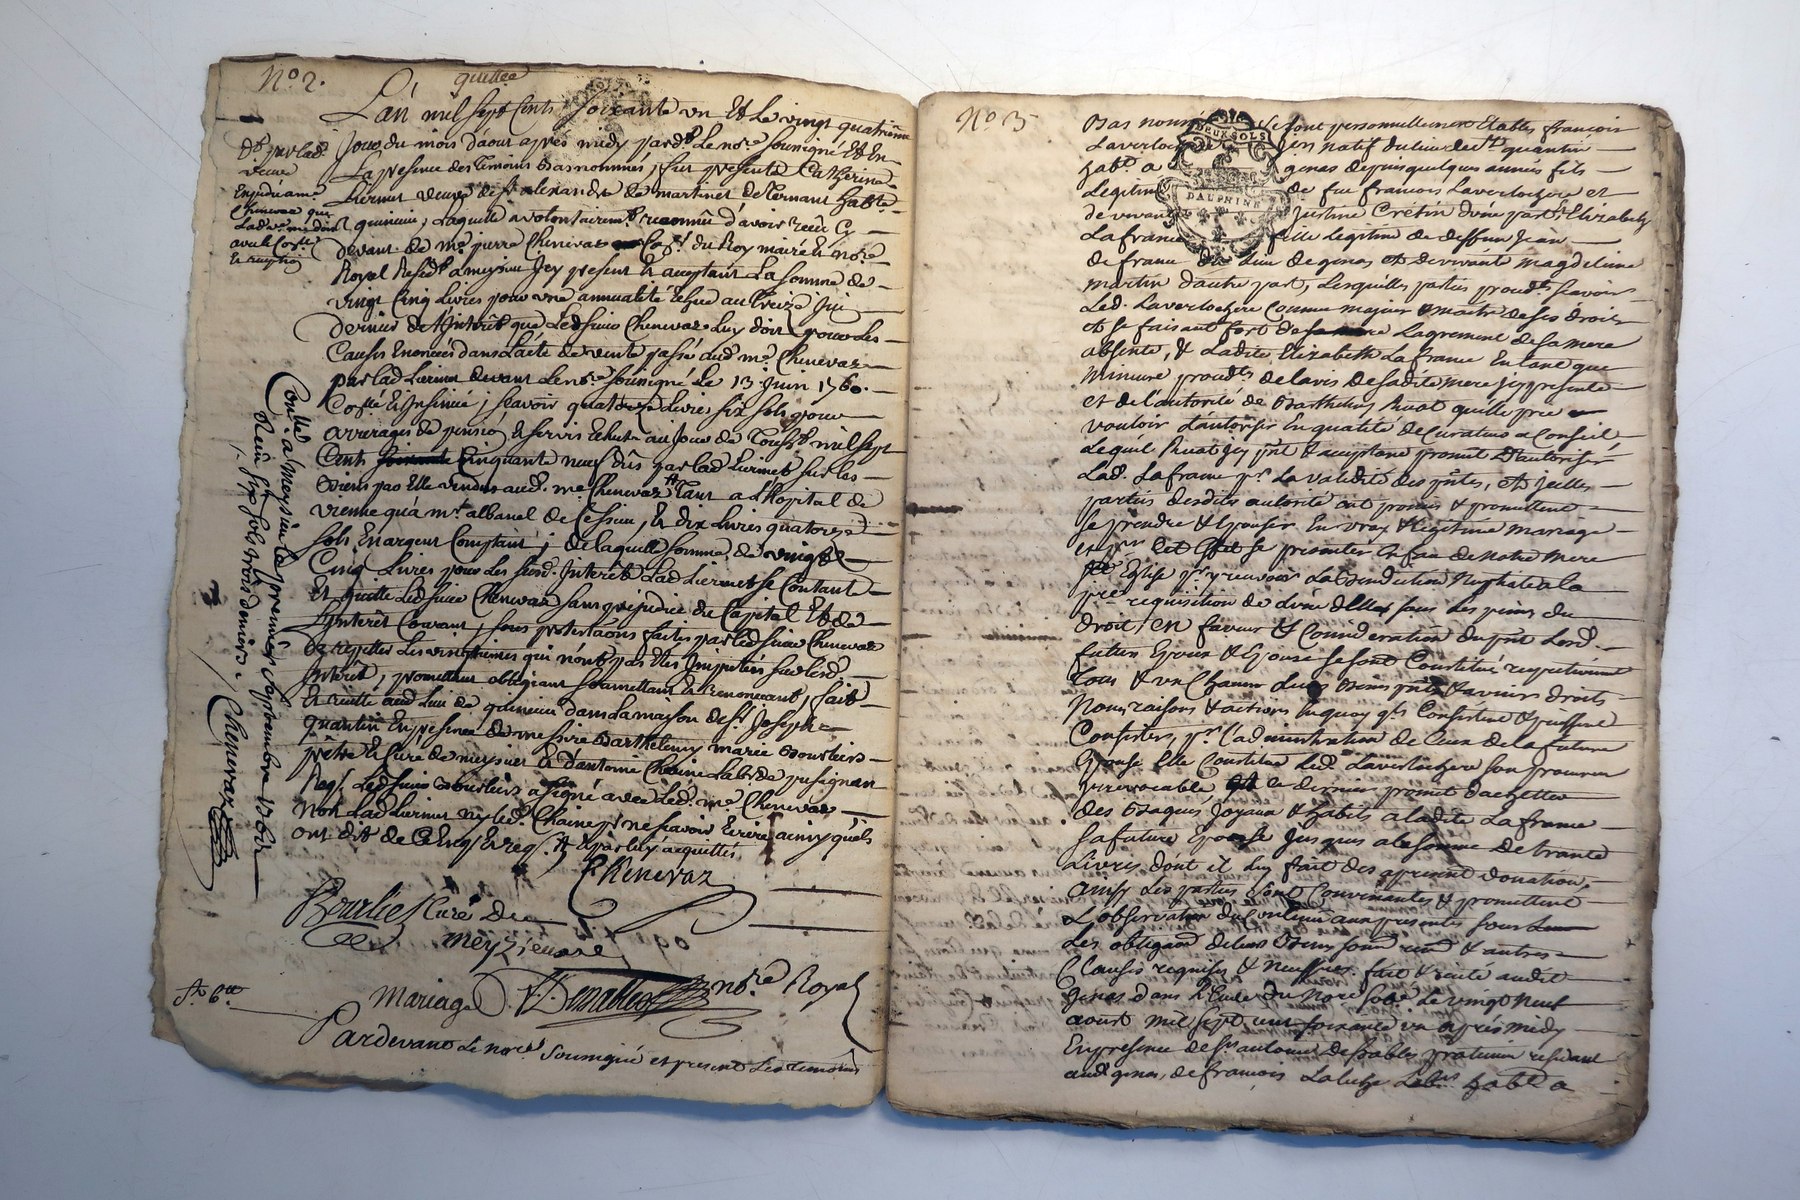 No 2.
quittee
L'an mil sept cents soixante un et le vingt quatrieme
jour du mois d'aout apres midy pard.t le no.re soussigné et en
la presence des temoins bas nommés, fut presente Catherine
Liermet veuve de s.r alexandre de martinet de Ternant hab.te
quinieu, laquelle a volontairem.t reconnu d'avoir receu cy
devant de m.e pierre Chenevaz Co.er du Roy maire et no.re
Royal Resid.t a meysieu jcy present et acceptant la somme de
vingt cinq livres pour une annualité echue au treize juin
dernier de l'interêt que led sieur Chenevaz luy doit pour les
causes enoncées dans l'acte de vente passé aud m.e Chenevaz
par lad Liermet devant le no.re soussigné le 13 juin 1760.
Co.llé et insinué, scavoir quatorze livres six sols pour
arrerages de pension et servis echus au jour de Touss.ts mil sept
cents cinquante neuf dûs par lad Liermet sur les
biens par elle vendus aud. m.e Chenevaz tant a l'hopital de
vienne qu'a m.r albanel de Cessieu, et dix livres quatorze
sols en argent comptant; de laquelle somme de vingt
cinq livres pour les susd. interêts lad Liermet se contant
et quitte led sieur Chenevaz sans prejudice du capital et de
l'interêt courant, sous protestaõns faites par led sieur Chenevaz
de repetter les vingtiemes qui n'ont pas étés imputés sur led
interêt, promettant obligeant soumettant et renoncant, fait
et recité aud lieu de quinieu dans la maison de s.r Joseph
quantin en presence de messire Barthelemy marie Bourlier
prêtre et curé de meysieu et d'antoine Chaine lab.r de pusignan
Req.s led sieur Bourlier a signé avec led. m.e Chenevaz
non lad Liermet ny led. Chaine p.r ne scavoir ecrire ainsy quils
ont dit de ce enq.s et req.s et par luy acquittés
Chenevaz
Bourlier Curé de
meyzieu
D no.re Royal
D.t par lad.
veuve
Con.llé a meysieu le premier septembre 1761
Reçu six sols trois deniers, Chenevaz
mariage
Pardevant le no.re soussigné et present les temoins
No 3
DEUX SOLS
DAUPHINE
Bas nommés se sont personnellement etablis françois
Laverlochere natif du lieu de s.t quantin
hab.t a genas depuis quelques années fils
legitime de feu francois Laverlochere et
de vivante justine Crétin d'une part, et Elizabeth
La france fille legitime de deffun jean
de france du lieu de genas et de vivante magdeleine
martin d'autre part, Lesquelles parties proced.tes scavoir
Led. Laverlochere comme majeur et maitre de ses droits
et se faisant fort de l'agrement de sa mere
absente, et ladite Elizabeth La france en tant que
mineure proced.te de l'avis de sadite mere jcy presente
et de l'autorité de Barthelemy Ruat quelle prie
vouloir l'autoriser en qualité de curateur a conseil,
lequel Ruat jcy p.nt et acceptant promet d'autoriser
Lad. La france p.r la validité des p.ntes, et jcelles
parties desdites autorité ont promis et promettent
se prendre et epouser en vray et legitime mariage
et p.r cet effet se presenter en face de notre mere
s.te Eglise p.r y recevoir la benediction nuptiale a la
p.re requisition de l'une d'elles sous les peines de
droit, en faveur et consideration du p.nt Lesd.
futurs epoux et epouse se sont constitué respectivement
tous et un chacun leurs biens p.nts et avenir droits
noms raisons et actions en quoy q.ls consistent et puissent
consister, p.r l'administration de ceux de la future
epouse elle constitue led. Laverlochere son procureur
irrevocable, ce dernier promet d'acheter
des Bagues, joyaux et habits a ladite La france
sa future epouse jusques a la somme de trante
Livres dont il luy fait des apresent donation,
ainsy les parties sont convenantes et promettent
l'observation du contenu aux presentes sous
les obligaõns de leurs biens
clauses requises et necess.res fait et recité audit
genas dans l'etude du nore sous.é le vingt neuf
aoust mil sept cent soixante un apres midy
En presence de s.r antoine desables praticien residant
aud genas, de francois Lab.r hab.t a